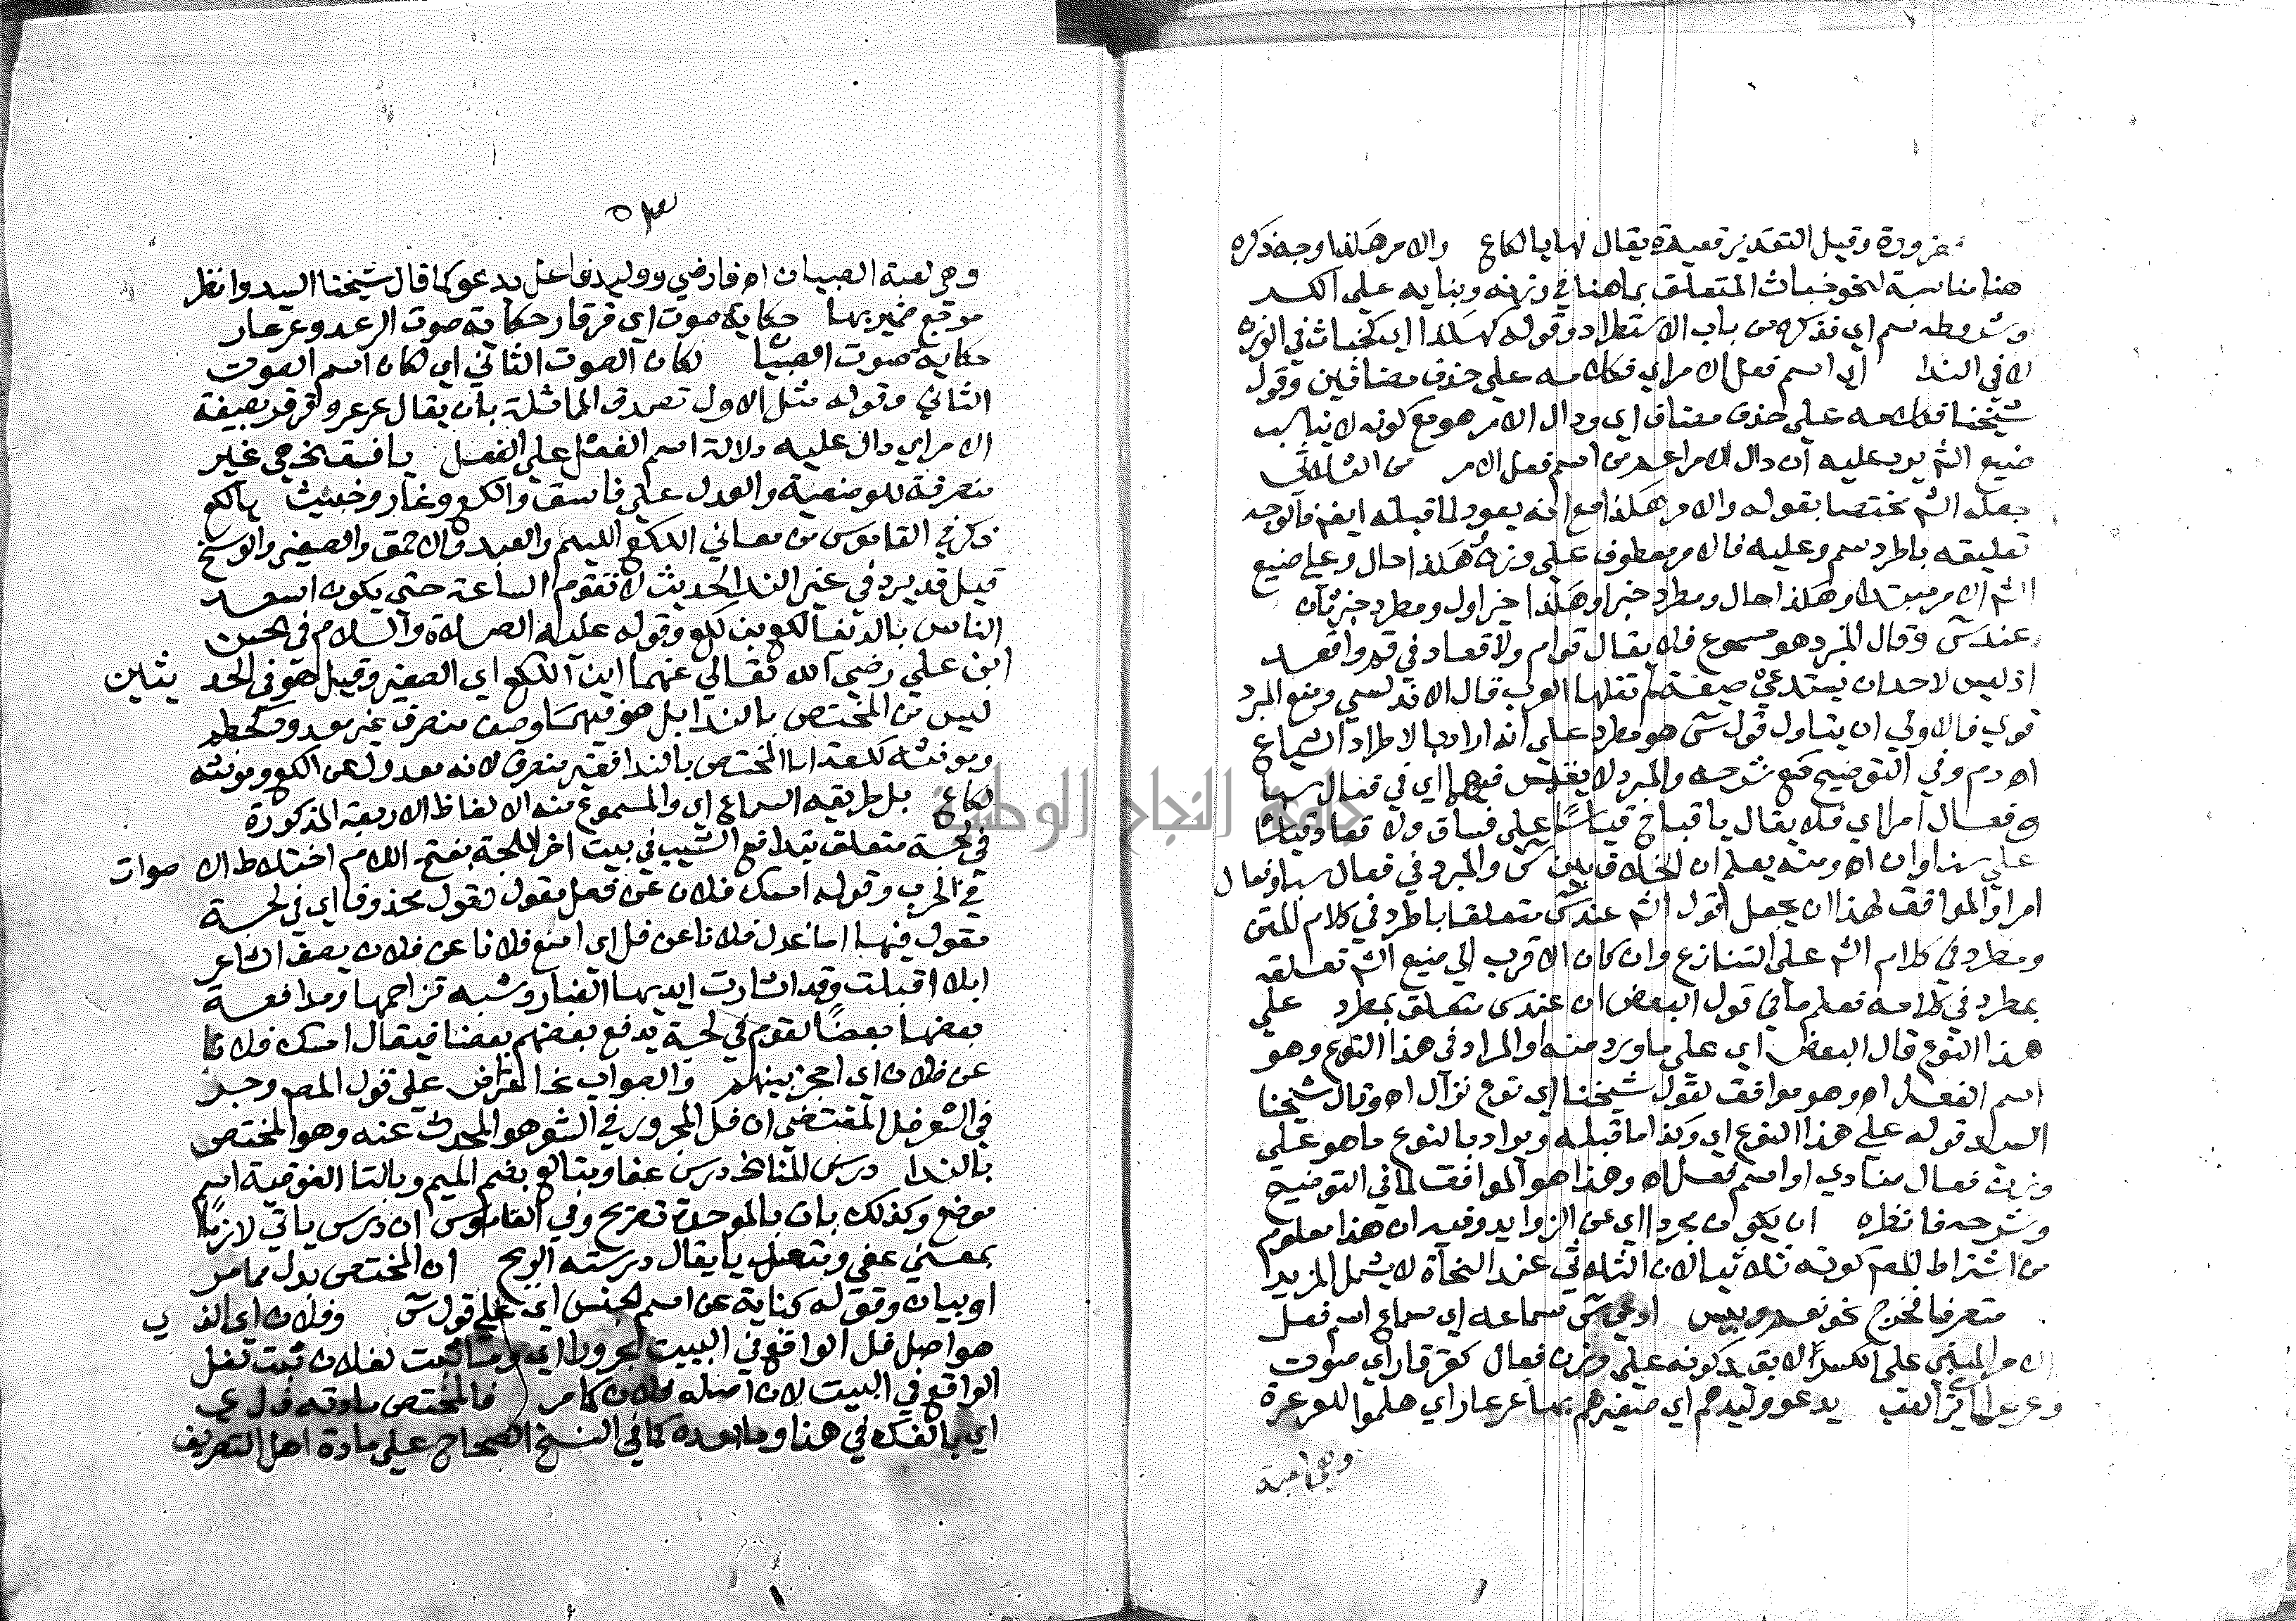 ضرورة وقيل التقدير قعيدة يقال لها يا لكاع والامر هكذا وجه ذكره
هنا مناسبة لنحو خباث المتعلق بما هنا في وزنه وبنايه على الكسر
وشروطه سم اي فذكره من باب الاستطراد وقوله هكذا اي كخباث في الوزن
لا في الندا اي اسم فعل الامر اي فكلامه على حذف مضافين وقول
شيخنا فكلامه على حذف مضاف اي ودال الامر هو مع كونه لا يناسب
صنيع الشم يرد عليه ان دال الامر اعم من اسم فعل الامر من الثلاثي
جعله الشم مختصا بقوله والامر هكذا مع انه يعود لما قبله ايضا فالوجه
تعليقه باطرد سم وعليه فالامر معطوف على وزن وهكذا حال وعلى صنيع
الشم الامر مبتدا وهكذا حال ومطرد خبر او هكذا خبر اول ومطرد خبر ثان
عند س وقال المبرد هو مسموع فلا يقال قوام ولا قعاد في قم واقعد
اذ ليس لاحد ان يبتدع صيغة لم تقلها العرب قال الاندلسي ومنع المبرد
قوي فالاولى ان يتاول قول س هو مطرد على انه اراد بالاطراد السماع
اه دم وفي التوضيح مع شرحه والمبرد لا يقيس فيهما اي في فعال سبا
وفعال امرا اي فلا يقال يا قباح قياسا على فساق ولا قعاد قياسا
على نزال اه ومنه يعلم ان الخلاف بين س والمبرد في فعال سبا وفعال
امرا والموافق لهذا ان يجعل قول الشم عند س متعلقا باطرد في كلام المتن
ومطرد في كلام الشم على التنازع وان كان الاقرب الى صنيع الشم تعلقه
بمطرد في كلامه فعلم ما في قول البعض ان عند س متعلق بمطرد على
هذا النوع قال البعض اي على ما ورد منه والمراد في هذا النوع وهو
اسم الفعل اه وهو موافق لقول شيخنا اي نوع نزال اه وقال شيخنا
السيد قوله على هذا النوع اي وكذا ما قبله ويراد بالنوع ما هو على
وزن فعال منادي او اسم فعل اه وهذا هو الموافق لما في التوضيح
وشرحه فانظره ان يكون مجردا اي عن الزوايد وفيه ان هذا معلوم
من اشتراط المصم كونه ثلاثيا لان الثلاثي عند النحاة لا يشمل المزيد
متصرفا فخرج نحو نعم وبيس وعن س سماعه اي سماع اسم فعل
الامر المبني على الكسر لا بقيد كونه على وزن فعال كقرقار اي صوت
يدعو وليدهم اي صغيرهم بها عرعار اي هلموا للعرعرة
وهي لعبة
٥٣
وهي لعبة الصبيان اه فارضي ووليد فاعل يدعو كما قال شيخنا السيد وانظر
موقع ضمير بها حكاية صوت اي قرقار حكاية صوت الرعد وعرعار
حكاية صوت الصبيا لكان الصوت الثاني اي لكان اسم الصوت
الثاني وقوله مثل الاول تصدق المماثلة بان يقال عرعر وقرقر بصيغة
الامر اي دال عليه دلالة اسم الفعل على الفعل يا فسق هي غير
منصرفة للوصفية والعدل على فاسق والكع وغادر وخبيث يا لكع
ذكر في القاموس من معاني اللكع اللييم والعبد والاحمق والصغير والوسخ
قيل قد يرد في غير الندا لحديث لا تقوم الساعة حتى يكون اسعد
الناس بالدنيا لكع بن لكع وقوله عليه الصلاة والسلام في الحسن
ابن علي رضي الله تعالى عنهما اين اللكع اي الصغير وقيل هو في الحديثين
ليس من المختص بالندا بل هو فيهما وصف منصرف غير معدول كحطم
ومونثه لكعة اما المختص بالندا فغير منصرف لانه معدول عن الكع ومونثه
لكاع بل طريقه السماع اي والمسموع منه الالفاظ الاربعة المذكورة
في لجة متعلق بتدافع الشيب في بيت اخر اللجة بفتح اللام اختلاط الاصوات
في الحرب وقوله امسك فلان عن فعل مقول لقول محذوف اي في لجة
مقول فيها امسك فلانا عن فل اي امنع فلانا عن فلان يصف الشاعر
ابلا اقبلت وقد اثارت ايديها الغبار وشبه تزاحمها ومدافعة
بعضها بعضا لقوم في لجة يدفع بعضهم بعضا فيقال امسك فلانا
عن فلان اي احجز بينهم والصواب الخ اعتراض على قول المصم وجر
في الشعر فل المقتضي ان فل المجرور في الشعر هو المحدث عنه وهو المختص
بالندا درس المنا الخ درس عفا ومتالع بضم الميم وبالتا الفوقية اسم
موضع وكذلك ابان بالموحدة تصريح وفي القاموس ان درس ياتي لازما
بمعنى عفى ومتعديا يقال درسته الريح ان المختص بدل مما مر
او بيان وقوله كناية عن اسم الجنس اي على قول س وفلان اي الذي
هو اصل فل الواقع في البيت مجرورا اي وما ثبت لفلان ثبت لفل
الواقع في البيت لان اصله فلان كما مر فالمختص مادته ف ل ي
اي بالفك في هذا وما بعده كما في النسخ الصحاح على مادة اهل التصريف
جامعة النجاح الوطنية